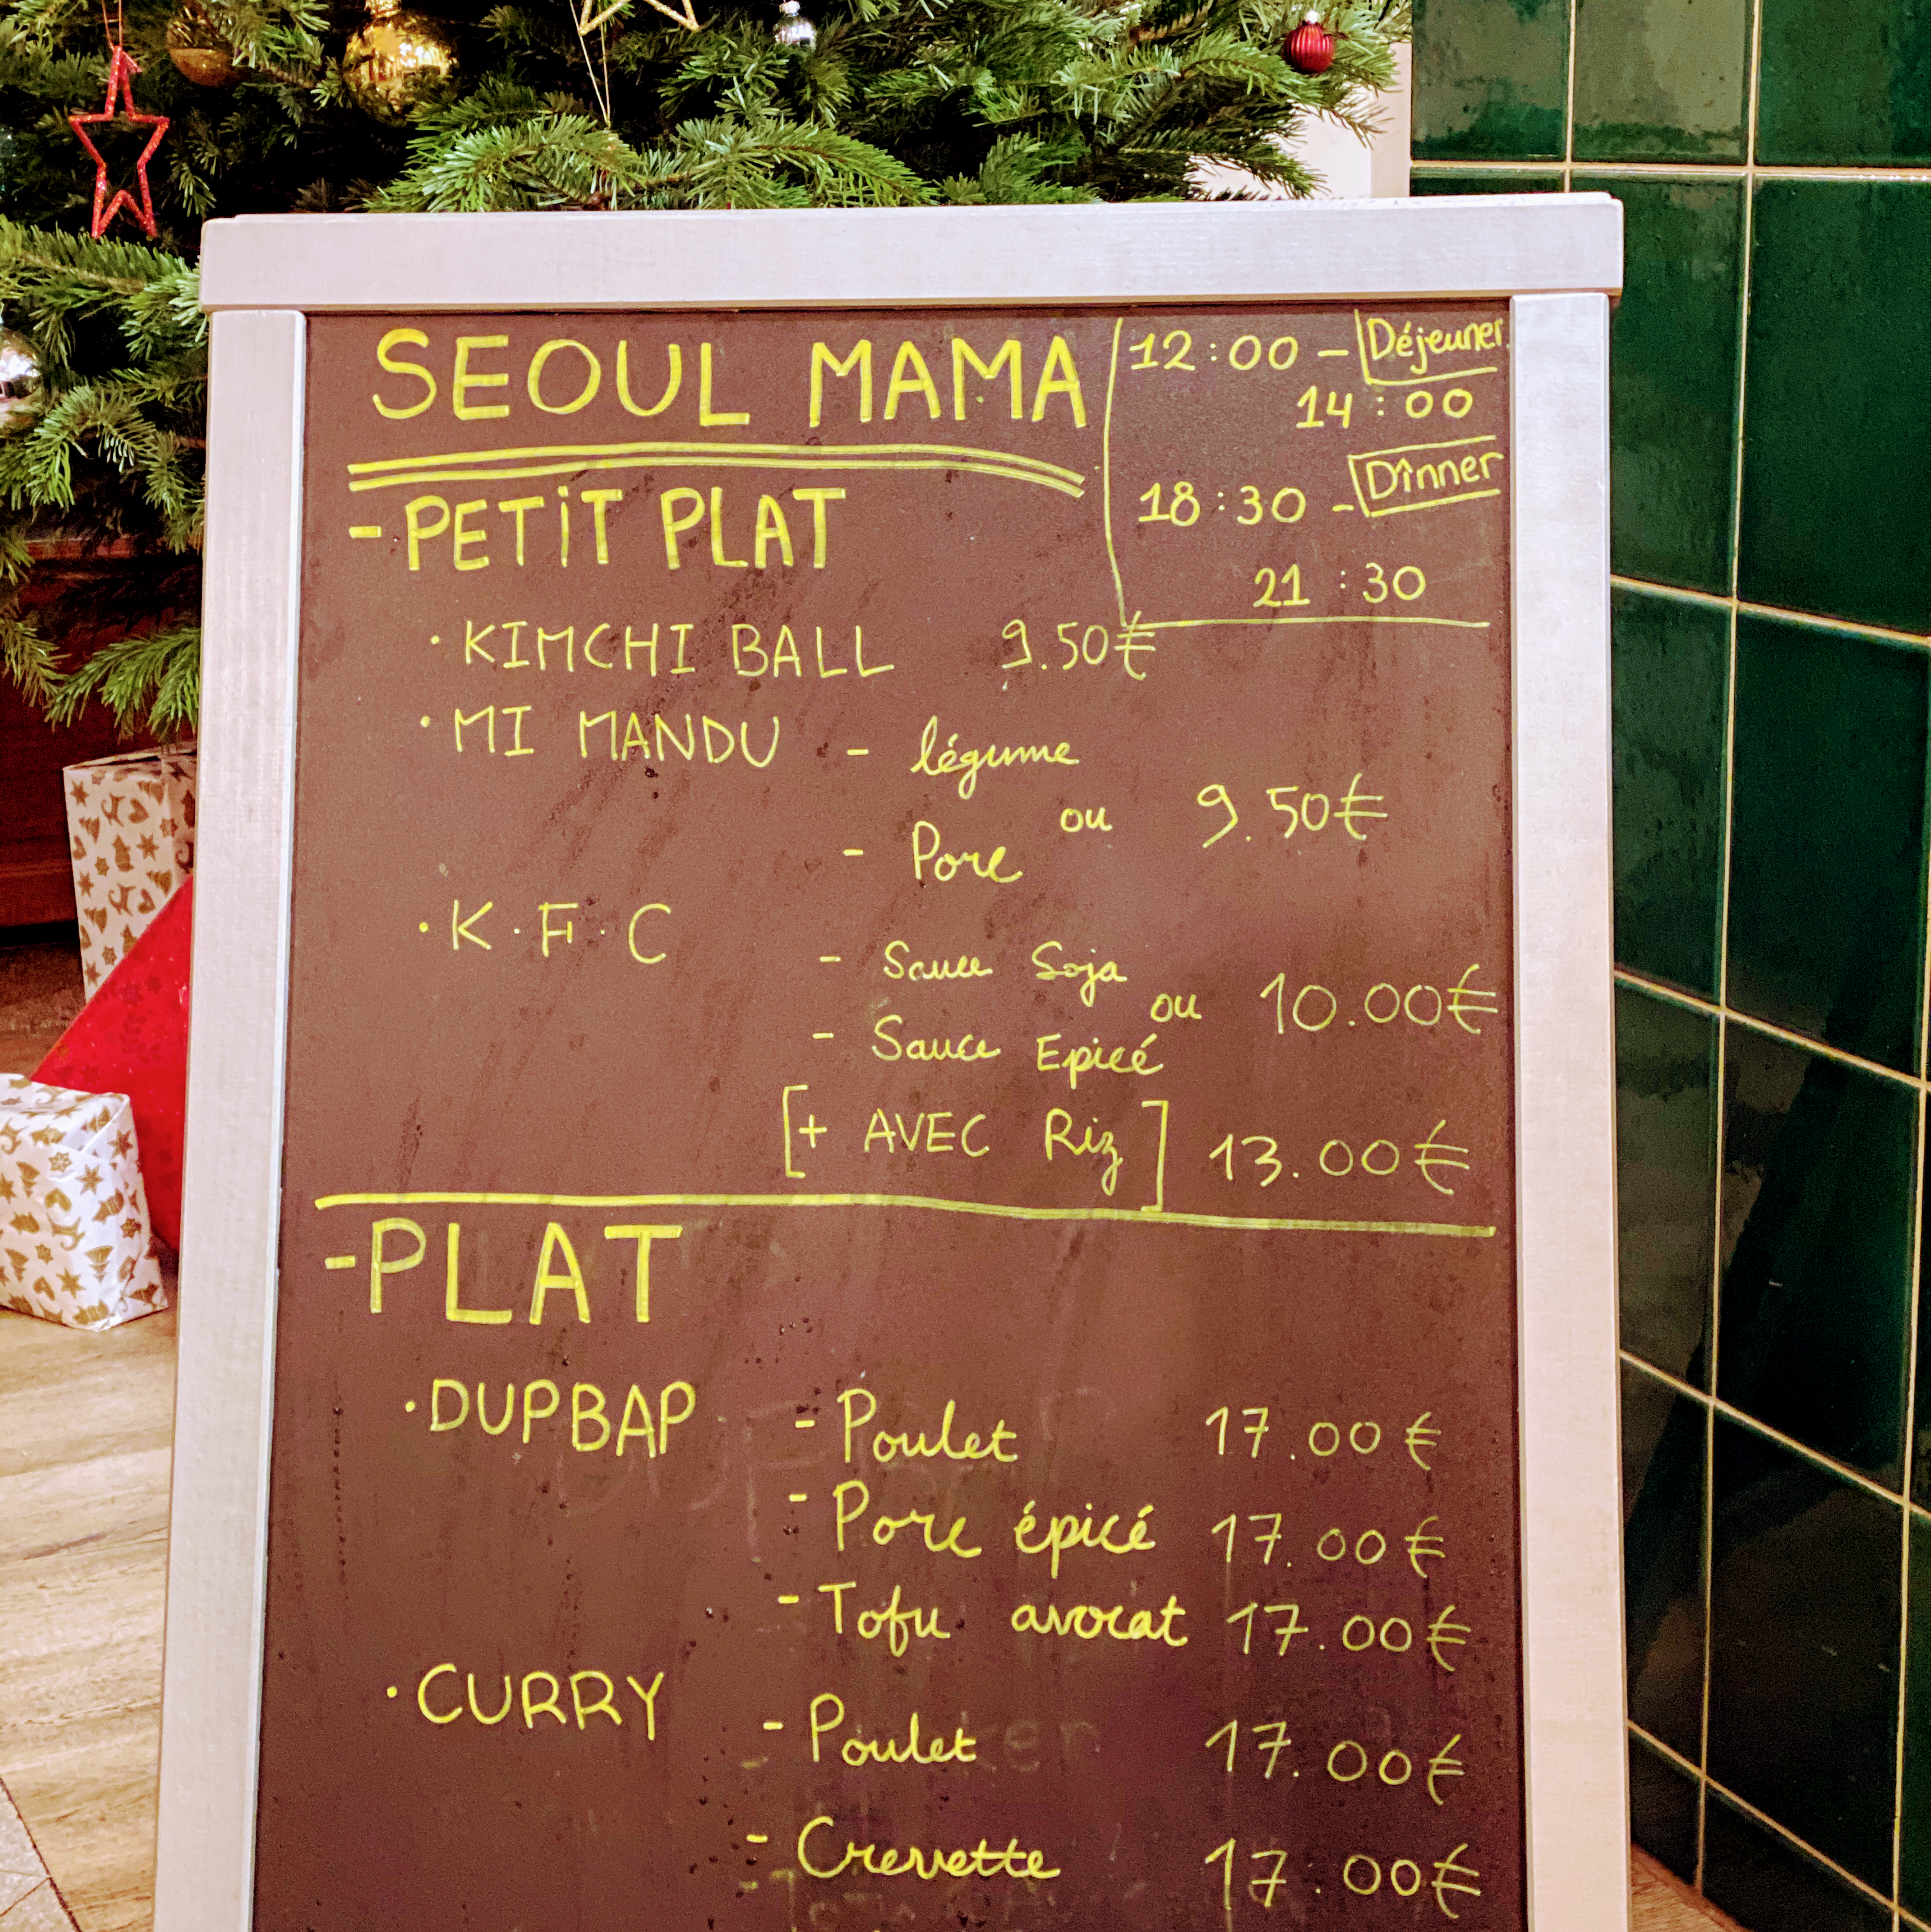 SEOUL MAMA
12:00 - Déjeuner
14:00
18:30 - Dînner
21:30
- PETIT PLAT
· KIMCHI BALL 9.50€
· MI MANDU - légume
ou 9.50€
- Porc
· K.F.C
- Sauce Soja
ou 10.00€
- Sauce Epicé
[+ AVEC Riz] 13.00€
- PLAT
· DUPBAP - Poulet 17.00€
- Porc épicé 17.00€
- Tofu avocat 17.00€
· CURRY - Poulet 17.00€
- Crevette 17.00€